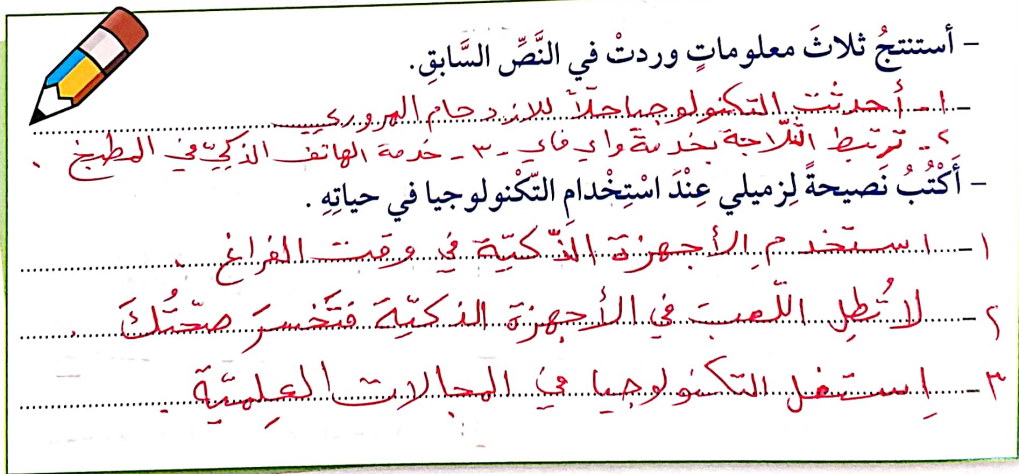 - أستنتجُ ثلاثَ معلوماتٍ وردتْ في النَّصِّ السَّابقِ.
١- أحدثت التكنولوجيا حلاً للازدحام المروري
٢- ترتبط الثّلاجة بخدمة واي فاي - ٣- خدمة الهاتف الذكيّ في المطبخ .
- أَكْتُبُ نَصيحةً لِزميلي عِنْدَ اسْتِخْدامِ التّكْنولوجيا في حياتِهِ .
١- استخدمِ الأجهزة الذّكيّة في وقت الفراغ .
٢- لا تُطِلِ اللّعبَ في الأجهزة الذكيّة فتَخسرَ صحّتُكَ .
٣- إستغل التكنولوجيا في المجالات العِلميّة .